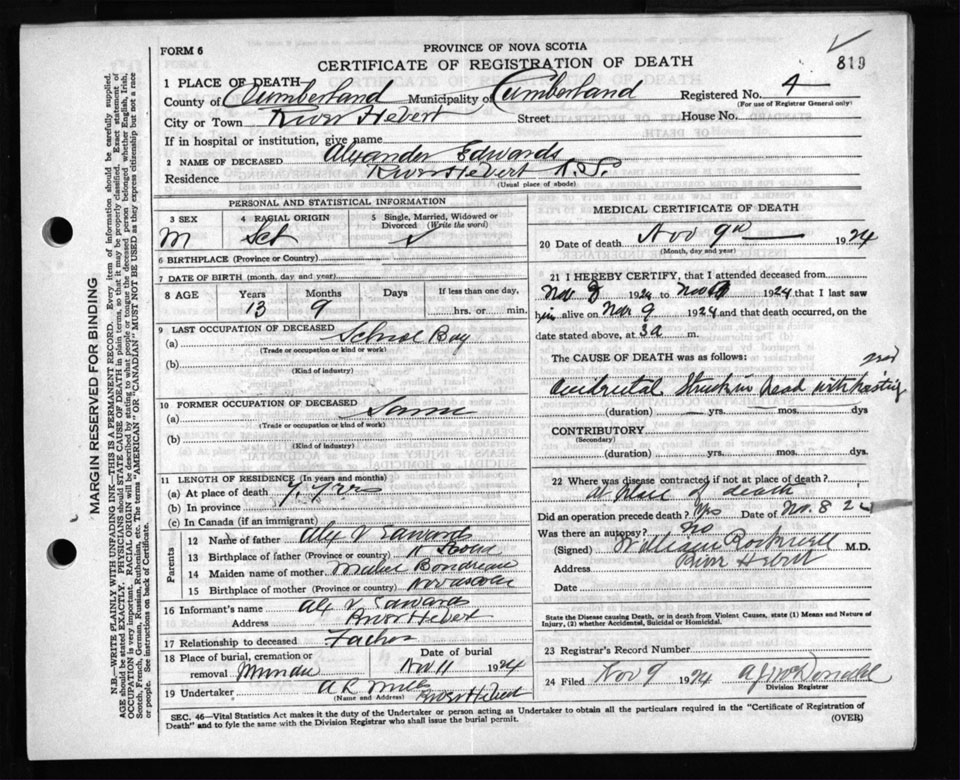 FORM 6
PROVINCE OF NOVA SCOTIA
819
CERTIFICATE OF REGISTRATION OF DEATH
1 PLACE OF DEATH—
County of Cumberland Municipality of Cumberland Registered No. 4
(For use of Registrar General only)
City or Town River Hebert Street House No.
If in hospital or institution, give name
2 NAME OF DECEASED Alexander Edwards
Residence River Hebert N.S.
(Usual place of abode)
PERSONAL AND STATISTICAL INFORMATION
3 SEX M
4 RACIAL ORIGIN Sct
5 Single, Married, Widowed or Divorced (Write the word)
6 BIRTHPLACE (Province or Country)
7 DATE OF BIRTH (month, day and year)
8 AGE Years 13 Months 9 Days If less than one day, hrs. or min.
9 LAST OCCUPATION OF DECEASED
(a) School Boy
(Trade or occupation or kind or work)
(b)
(Kind of industry)
10 FORMER OCCUPATION OF DECEASED
(a) Same
(Trade or occupation or kind of work)
(b)
(Kind of industry)
11 LENGTH OF RESIDENCE (In years and months)
(a) At place of death 7 yrs
(b) In province
(c) In Canada (if an immigrant)
Parents
12 Name of father Alex V Edwards
13 Birthplace of father (Province or country) N Scotia
14 Maiden name of mother Boudreau
15 Birthplace of mother (Province or country) Nova Scotia
16 Informant's name Alex V Edwards
Address River Hebert
17 Relationship to deceased Father
18 Place of burial, cremation or removal Minudie
Date of burial Nov 11 1924
19 Undertaker A R River Hebert
(Name and Address)
MEDICAL CERTIFICATE OF DEATH
20 Date of death Nov 9th 1924
(Month, day and year)
21 I HEREBY CERTIFY, that I attended deceased from
Nov 8 1924 to Nov 9 1924 that I last saw
him alive on Nov 9 1924 and that death occurred, on the
date stated above, at 3 a m.
The CAUSE OF DEATH was as follows:
accidental Struck in head with
(duration) yrs. mos. dys
CONTRIBUTORY
(Secondary)
(duration) yrs. mos. dys.
22 Where was disease contracted if not at place of death?
At place of death
Did an operation precede death? Yes Date of Nov. 8 24
Was there an autopsy? No
(Signed) William Rockwell M.D.
Address River Hebert
Date
State the Disease causing Death, or in death from Violent Causes, state (1) Means and Nature of
Injury, (2) whether Accidental, Suicidal or Homicidal.
23 Registrar's Record Number
24 Filed Nov 9 1924
Division Registrar
SEC. 46—Vital Statistics Act makes it the duty of the Undertaker or person acting as Undertaker to obtain all the particulars required in the "Certificate of Registration of
Death" and to fyle the same with the Division Registrar who shall issue the burial permit.
(OVER)
MARGIN RESERVED FOR BINDING
N.B.—WRITE PLAINLY WITH UNFADING INK—THIS IS A PERMANENT RECORD. Every item of information should be carefully supplied.
AGE should be stated EXACTLY. PHYSICIANS should STATE CAUSE OF DEATH in plain terms, so that it may be properly classified. Exact statement of
OCCUPATION is very important. RACIAL ORIGIN will be described by stating to what people or tongue the deceased person belonged whether English, Irish,
Scotch, French, German, Russian, Ruthenian, etc. The terms "AMERICAN" OR "CANADIAN" MUST NOT BE USED as they express citizenship but not a race
or people. See instructions on back of Certificate.